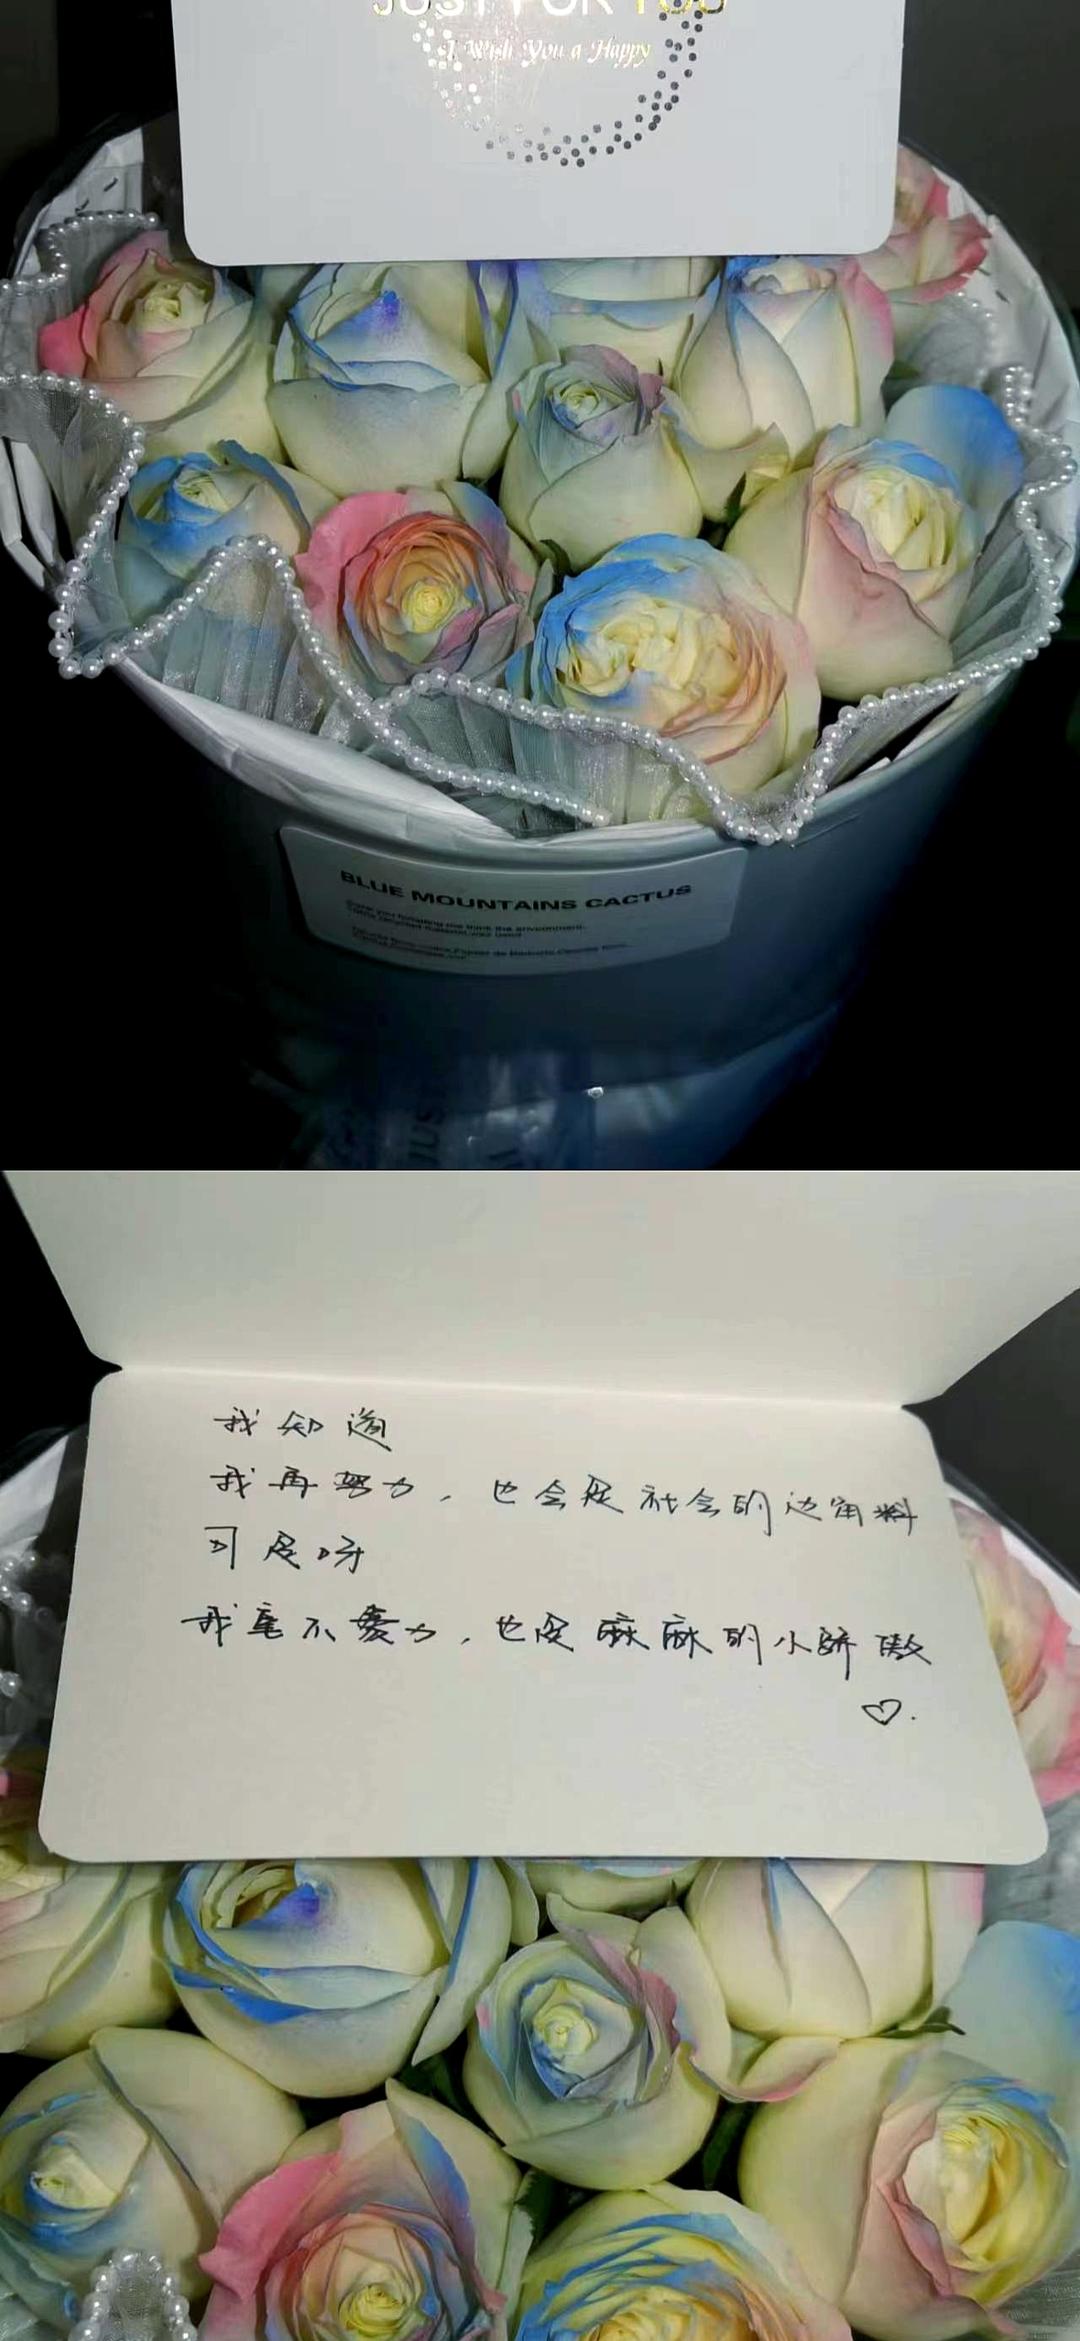 JUST FOR YOU
I Wish You a Happy
BLUE MOUNTAINS CACTUS
我知道
我再努力，也会是社会的边角料
可是呀
我毫不费力，也是麻麻的小骄傲
♡.